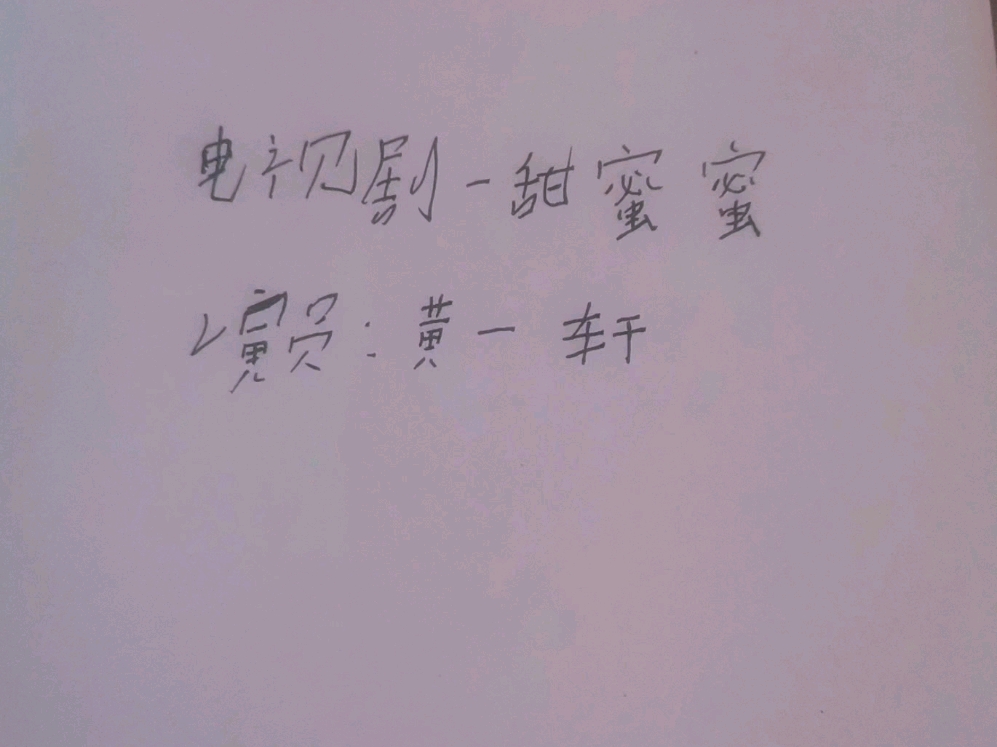 电视剧-甜蜜蜜
演员:黄一轩